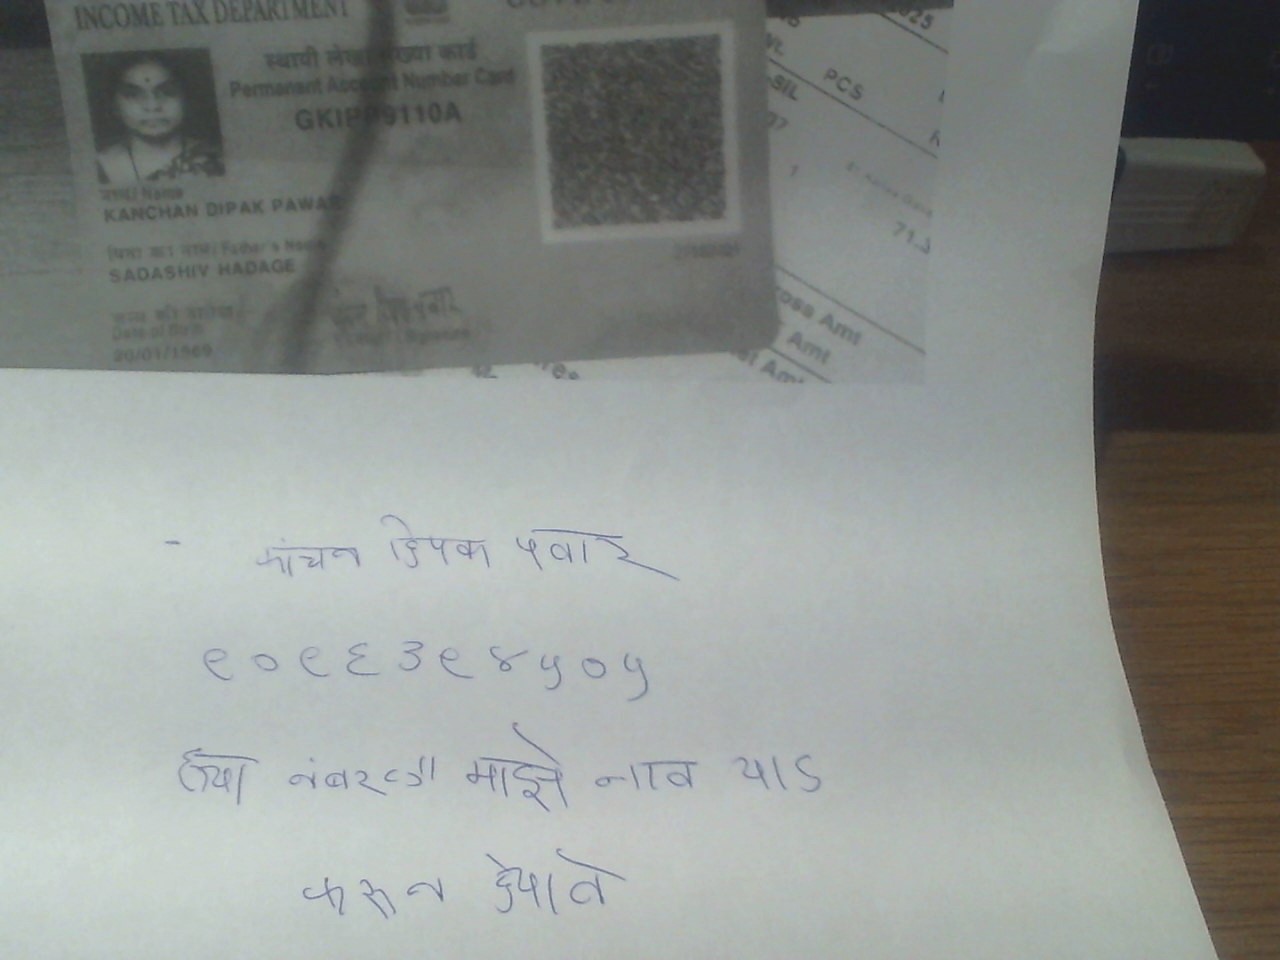 INCOME TAX DEPARTMENT
स्थायी लेखा संख्या कार्ड
Permanent Account Number Card
GKIPP9110A
नाम / Name
KANCHAN DIPAK PAWAR
पिता का नाम / Father's Name
SADASHIV HADAGE
Date of Birth
20/01/1969
Signature
025
PCS
SIL
1
71.
oss Amt
Amt
- कांचन दिपक पवार
९०९६३९४५०५
ह्या नंबरला माझे नाव याड
करून देयावे